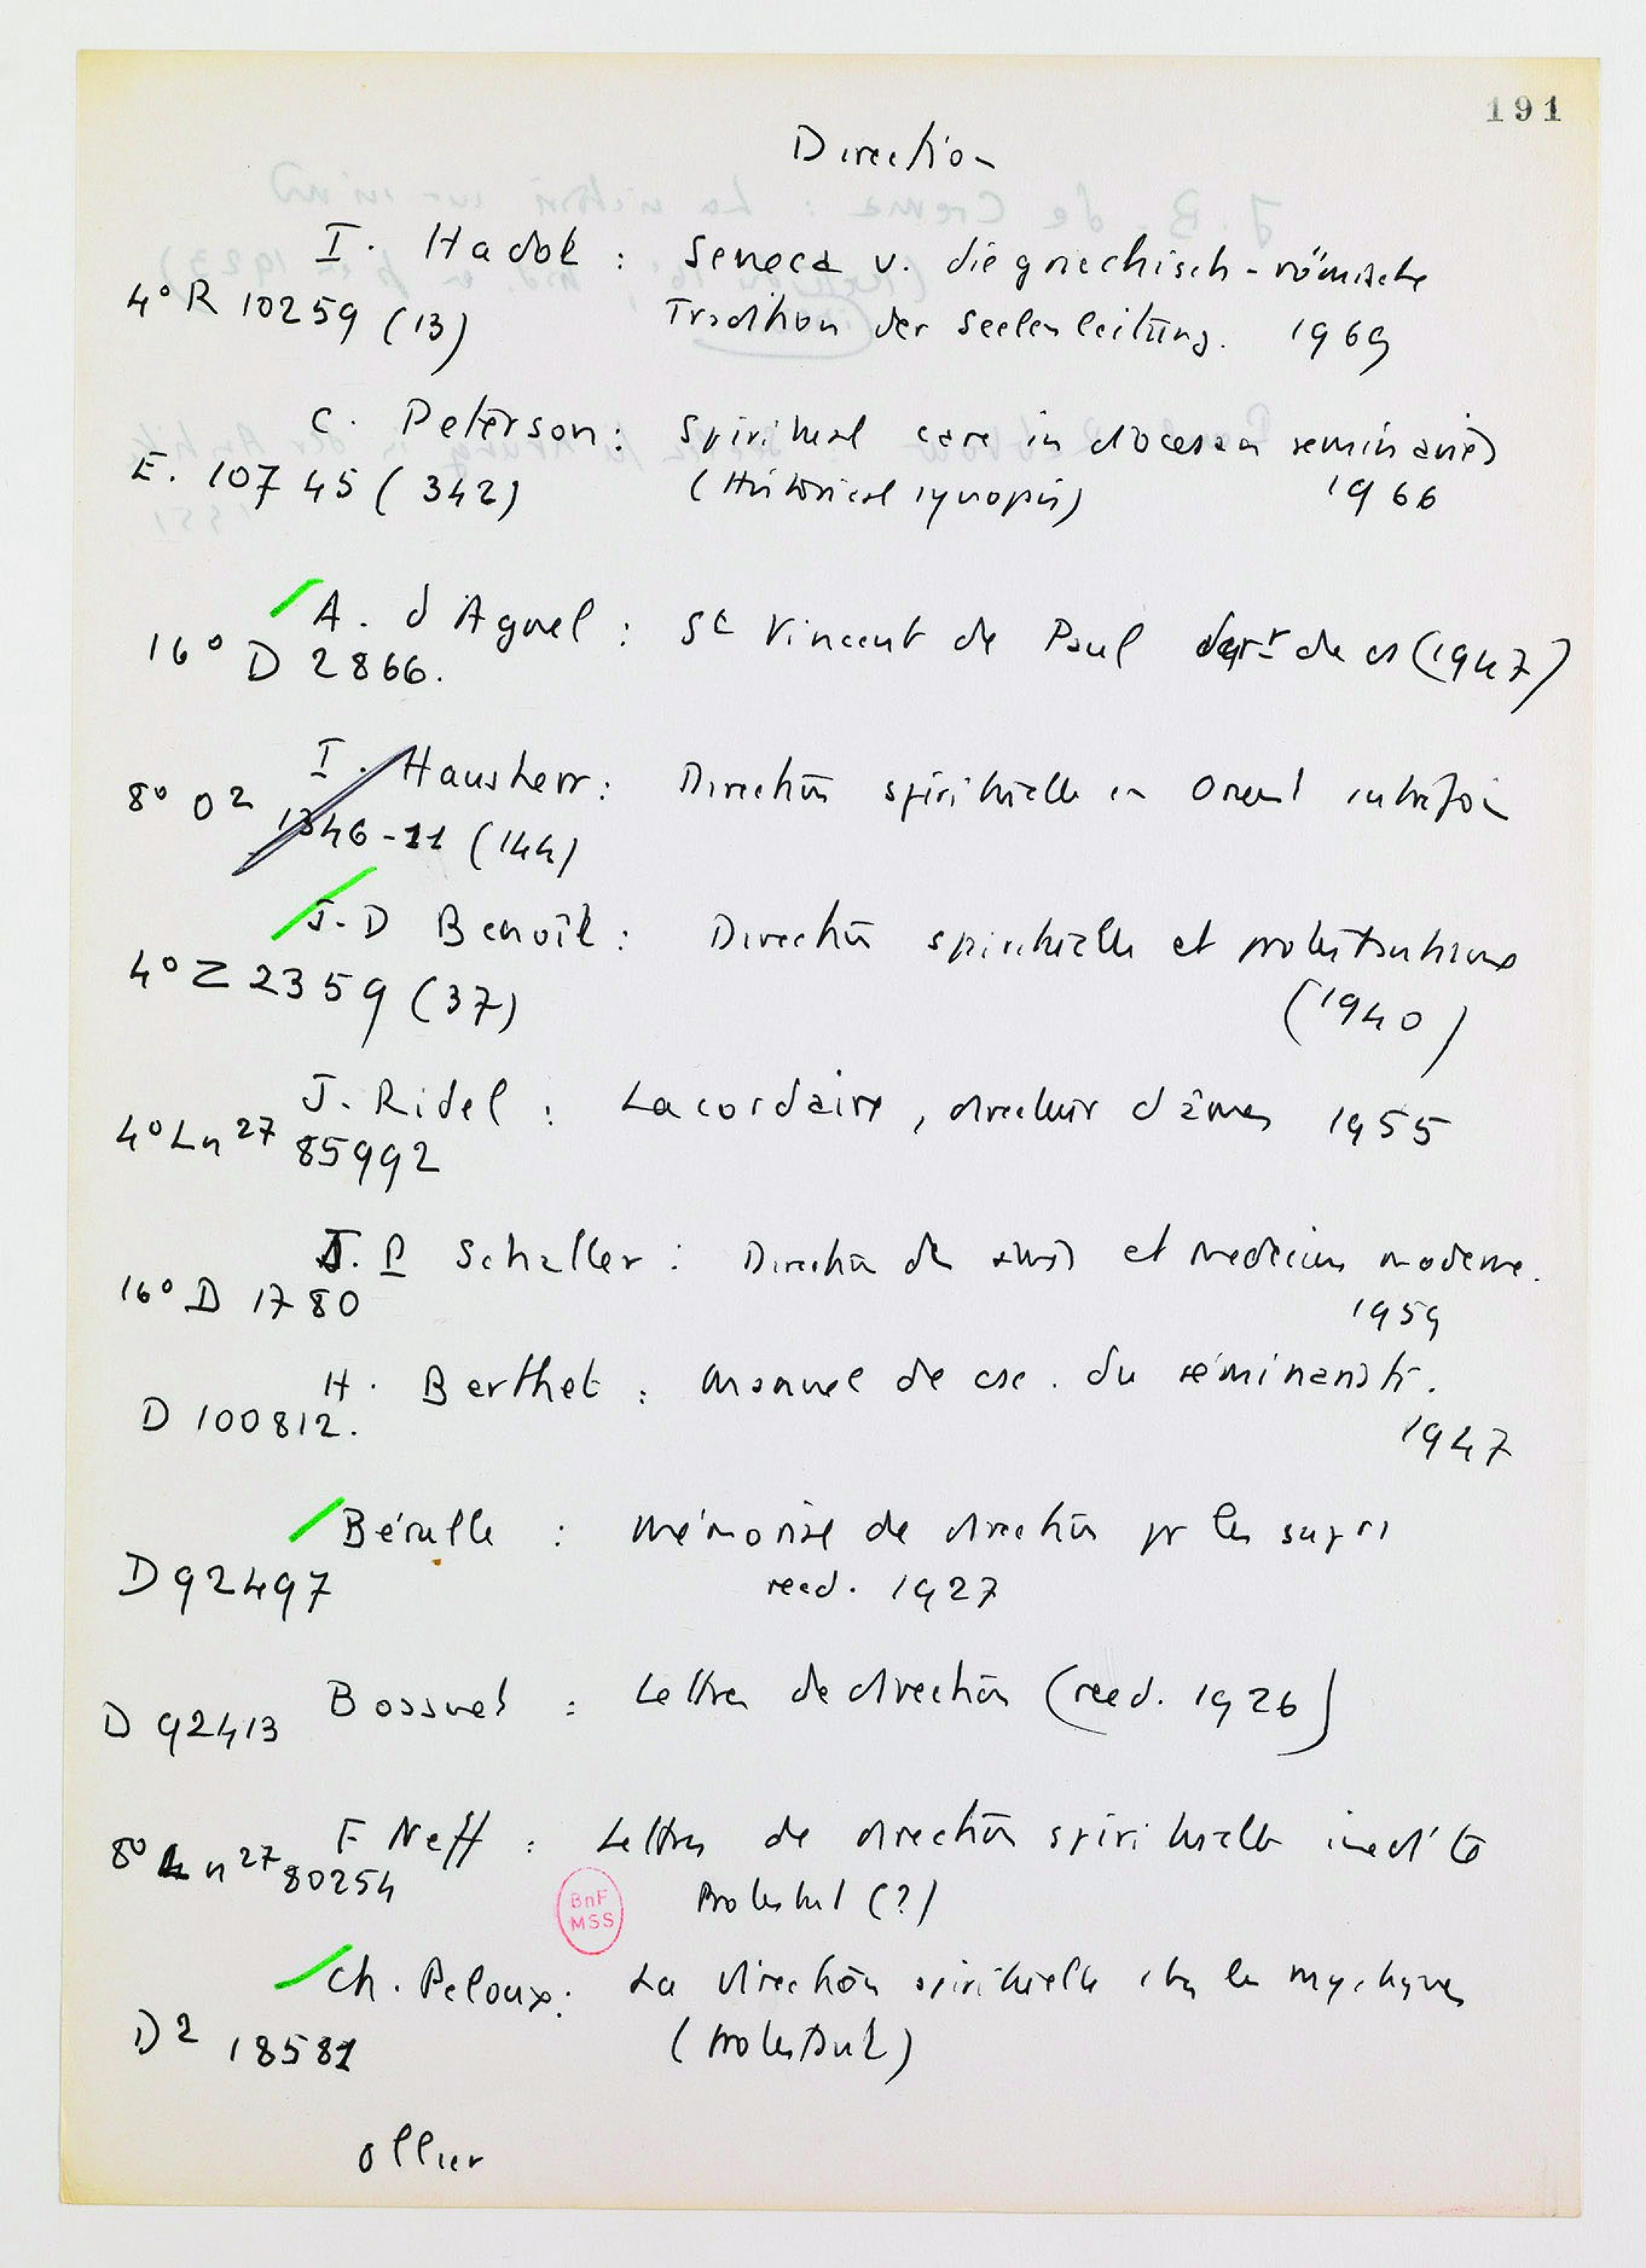 191
Direction
I. Hadot : Seneca u. die griechisch-römische
4° R 10259 (13) Tradition der Seelenleitung. 1969
C. Peterson : Spiritual care in diocesan seminaries
E. 10745 (342) (Historical synopsis) 1966
A. d'Agnel : St Vincent de Paul de (1947)
16° D 2866.
I. Hausherr : Direction spirituelle en Orient autrefois
8° O2 1346-11 (144)
J.-D Benoît : Direction spirituelle et protestantisme
4° Z 2359 (37) (1940)
J. Ridel : Lacordaire, directeur d'âmes 1955
4° Ln 27 85992
J. P Schaller : Direction des âmes et médecine moderne.
16° D 1780 1959
H. Berthet : Manuel de asc. du séminariste.
D 100812. 1947
Bérulle : Mémorial de direction pr les
D 92497 reed. 1927
Bossuet : Lettres de direction (reed. 1926)
D 92413
F Neff : Lettres de direction spirituelle
8° Ln 27 80254 Protestant (?)
BnF
MSS
Ch. Peloux : La direction spirituelle les
D2 18581 (protestant)
Ollier